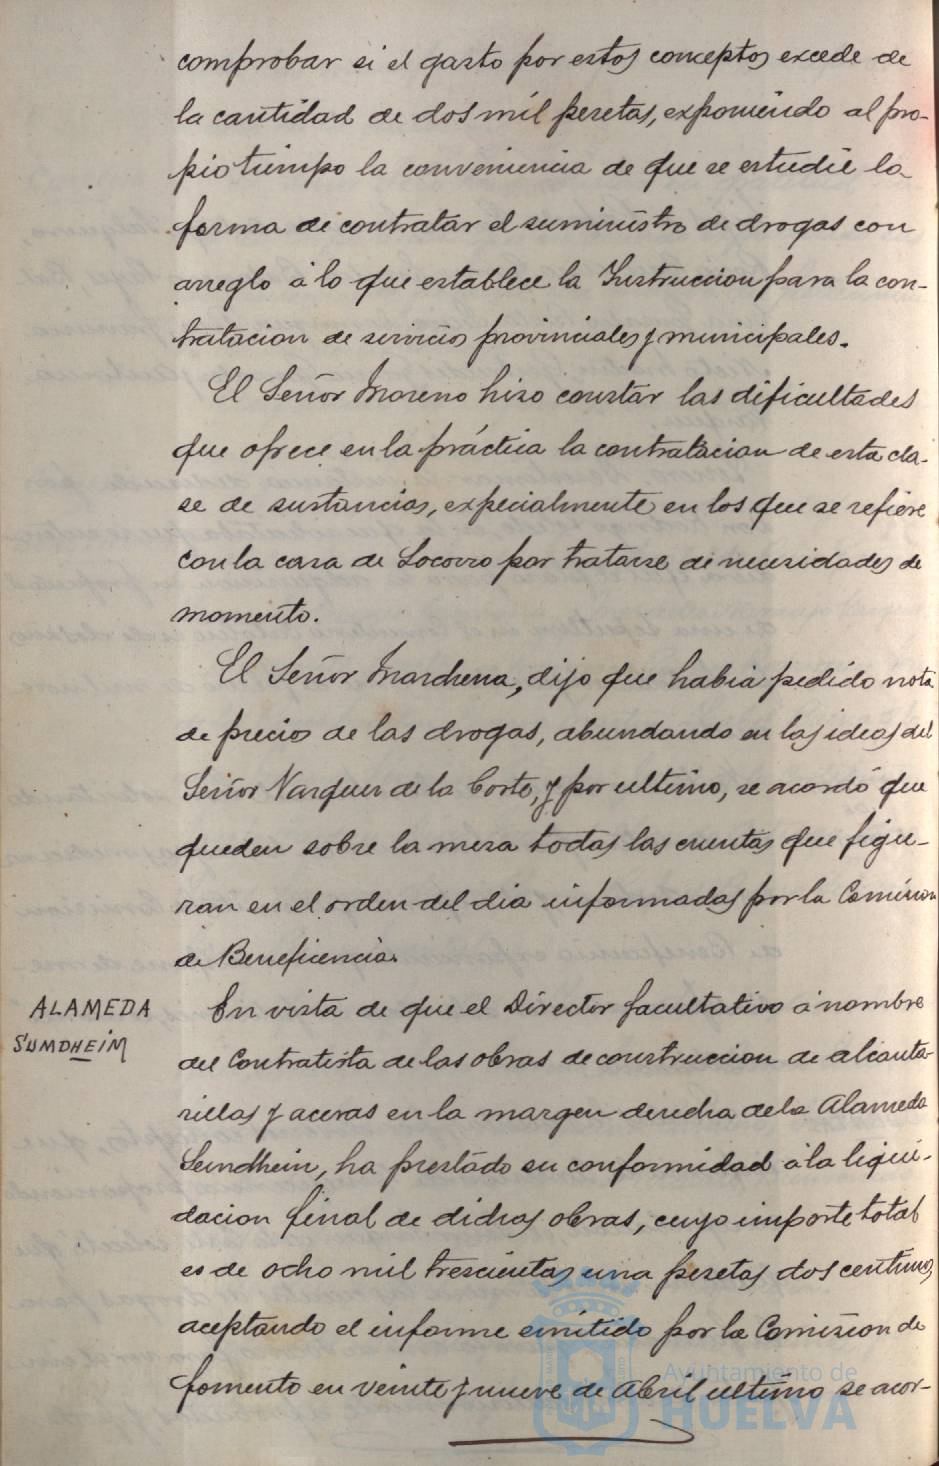 comprobar si el gasto por estos conceptos excede de
la cantidad de dos mil pesetas, exponiendo al pro-
pio tiempo la conveniencia de que se estudie la
forma de contratar el suministro de drogas con
arreglo á lo que establece la Instruccion para la con-
tratacion de servicios provinciales y municipales.
El Señor Moreno hizo constar las dificultades
que ofrece en la práctica la contratacion de esta cla-
se de sustancias, expecialmente en los que se refiere
con la casa de Socorro por tratarse de necesidades de
momento.
El Señor Marchena, dijo que habia pedido nota
de precios de las drogas, abundando en las ideas del
Señor Vazquez de la Corte, y por ultimo, se acordó que
queden sobre la mesa todas las cuentas que figu-
ran en el orden del dia informadas por la Comision
de Beneficencia.
ALAMEDA
SUMDHEIM
En vista de que el Director facultativo á nombre
del Contratista de las obras de construccion de alcanta-
rillas y aceras en la margen derecha de la Alameda
Sundhein, ha prestado su conformidad á la liqui-
dacion final de dichas obras, cuyo importe total
es de ocho mil trescientas una pesetas dos centimos,
aceptando el informe emitido por la Comision de
fomento en veinte y nueve de Abril ultimo se acor-
Ayuntamiento de
HUELVA